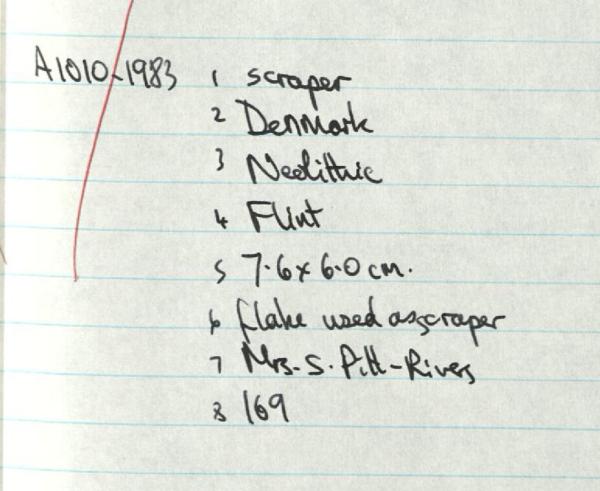 A1010-1983 1 scraper
2 Denmark
3 Neolithic
4 Flint
5 7.6 x 6.0 cm.
6 flake used as scraper
7 Mrs. S. Pitt-Rivers
8 169